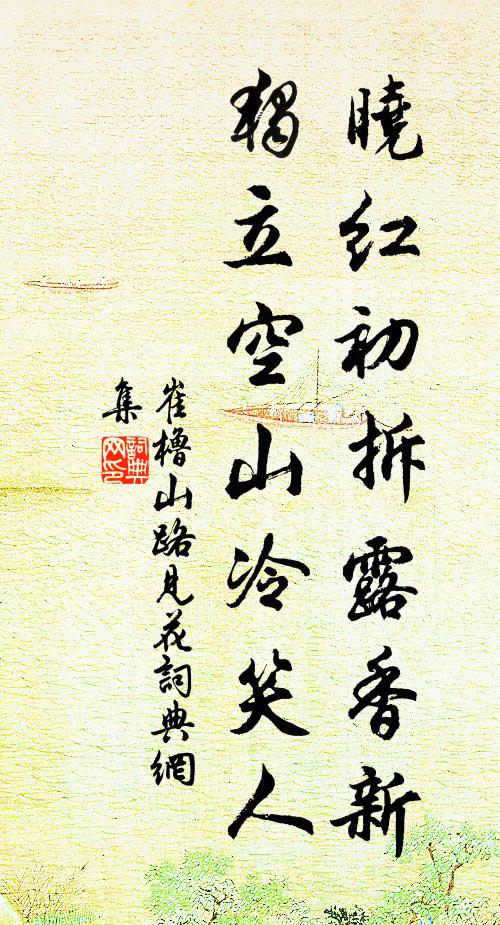 曉紅初拆露香新
獨立空山冷笑人
崔櫓山路見花詞典網
集
詞典
网印